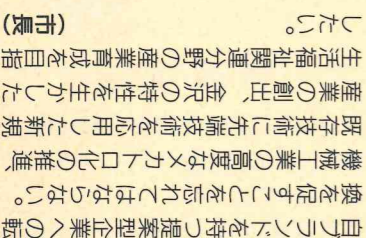 自ブランドを持つ提案型企業への転
換を促すことを忘れてはならない。
機械工業の高度なメカトロ化の推進、
既存技術に先端技術を応用した新規
産業の創出、金沢の特性を生かした
生活福祉関連分野の産業育成を目指
したい。　　　　　　　　　（市長）